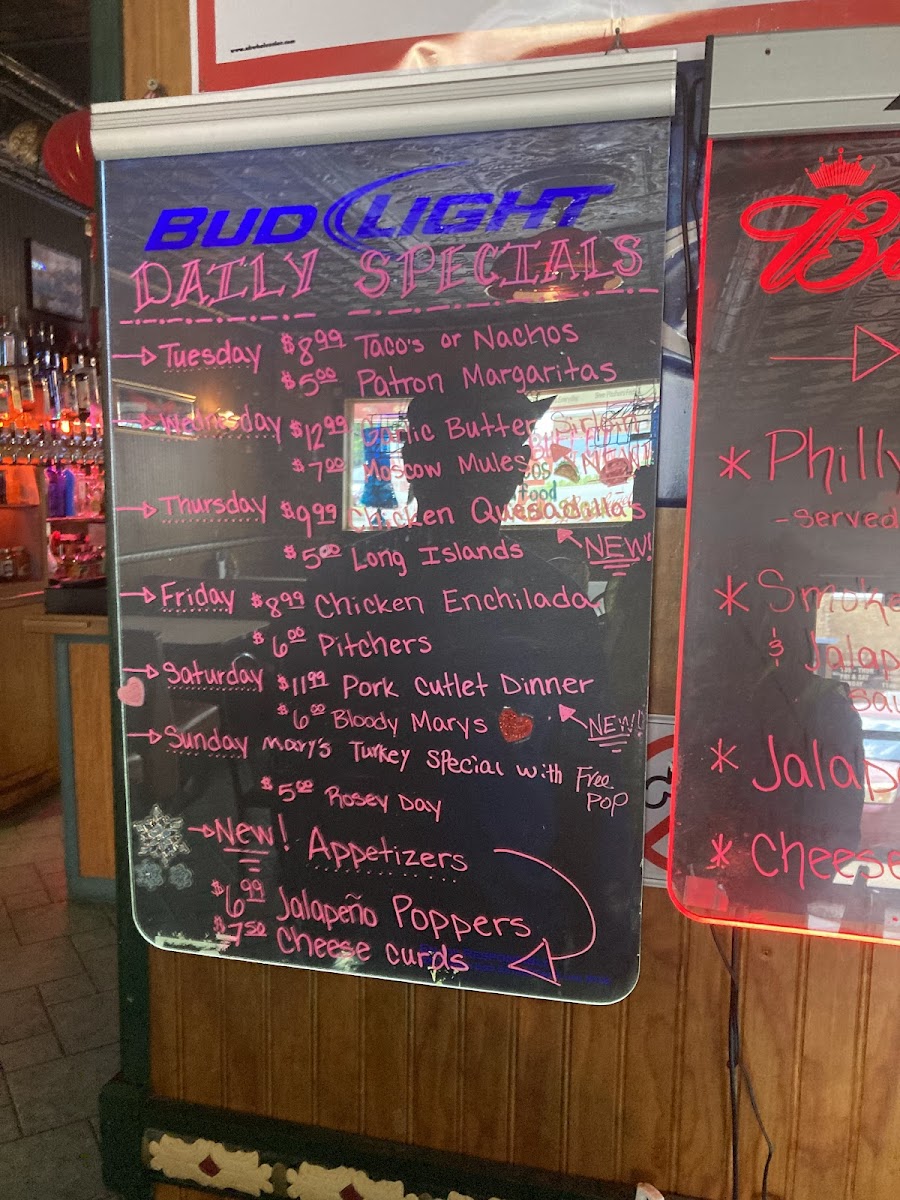 www.airwheelcenter.com
BUD LIGHT
DAILY SPECIALS
Tuesday $8.99 Taco's or Nachos
$5.00 Patron Margaritas
Wednesday $12.99 Garlic Butter Sirloin
$7.00 Moscow Mules
Thursday $9.99 Chicken Quesadillas
$5.00 Long Islands NEW!
Friday $8.99 Chicken Enchilada
$6.00 Pitchers
Saturday $11.99 Pork Cutlet Dinner
$6.00 Bloody Marys NEW!
Sunday Mary's Turkey Special with Free Pop
$5.00 Rosey Day
New! Appetizers
$6.99 Jalapeño Poppers
$7.50 Cheese curds
* Philly
- served
* Smoke
& Jalap
* Jalape
* Cheese